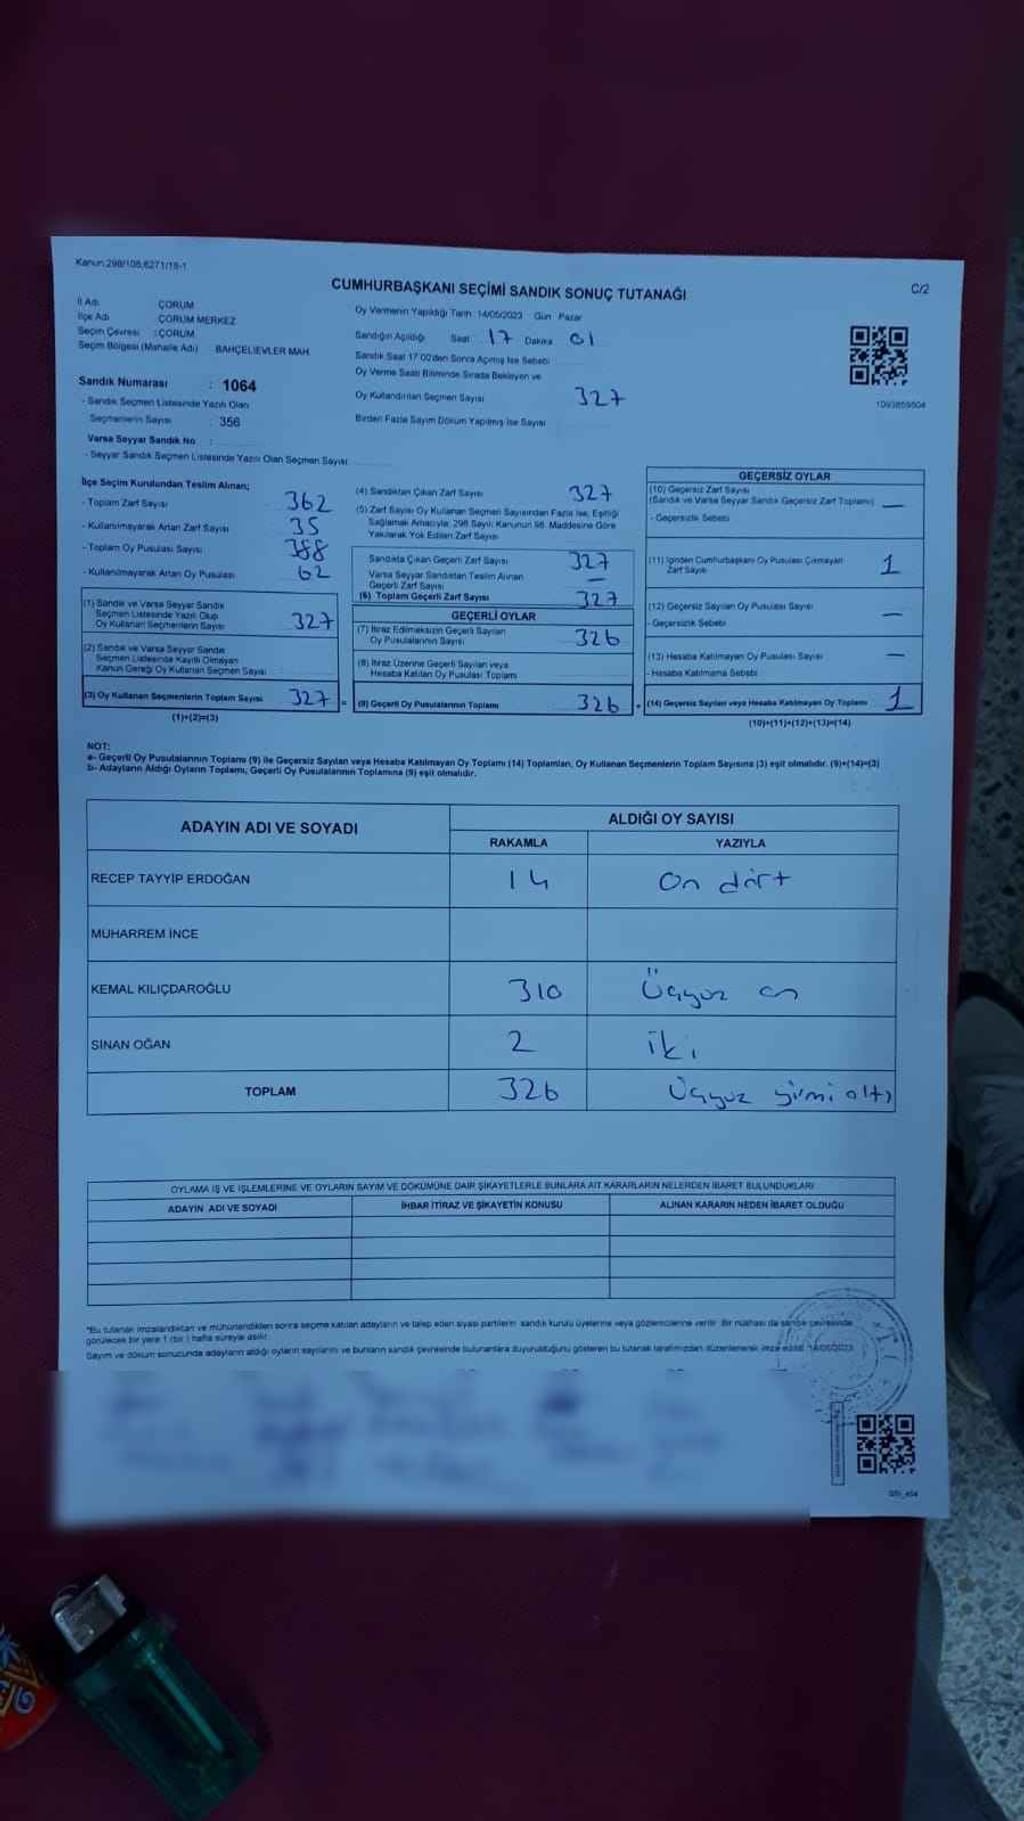 Kanun 298/105,6271/18-1
CUMHURBAŞKANI SEÇİMİ SANDIK SONUÇ TUTANAĞI
C/2
İl Adı ÇORUM
İlçe Adı ÇORUM MERKEZ
Seçim Çevresi : ÇORUM
Seçim Bölgesi (Mahalle Adı) BAHÇELİEVLER MAH.
Sandık Numarası : 1064
- Sandık Seçmen Listesinde Yazılı Olan
Seçmenlerin Sayısı : 356
Varsa Seyyar Sandık No :
- Seyyar Sandık Seçmen Listesinde Yazılı Olan Seçmen Sayısı
Oy Vermenin Yapıldığı Tarih : 14/05/2023 Gün Pazar
Sandığın Açıldığı Saat 17 Dakika 01
Sandık Saat 17:00'den Sonra Açılmış İse Sebebi
Oy Verme Saati Bitiminde Sırada Bekleyen ve
Oy Kullandırılan Seçmen Sayısı 327
Birden Fazla Sayım Döküm Yapılmış İse Sayısı
1093859504
İlçe Seçim Kurulundan Teslim Alınan;
- Toplam Zarf Sayısı 362
- Kullanılmayarak Artan Zarf Sayısı 35
- Toplam Oy Pusulası Sayısı 388
- Kullanılmayarak Artan Oy Pusulası 62
(1) Sandık ve Varsa Seyyar Sandık
Seçmen Listesinde Yazılı Olup
Oy Kullanan Seçmenlerin Sayısı 327
(2) Sandık ve Varsa Seyyar Sandık
Seçmen Listesinde Kayıtlı Olmayan
Kanun Gereği Oy Kullanan Seçmen Sayısı
(3) Oy Kullanan Seçmenlerin Toplam Sayısı 327 =
(1)+(2)=(3)
(4) Sandıktan Çıkan Zarf Sayısı 327
(5) Zarf Sayısı Oy Kullanan Seçmen Sayısından Fazla İse, Eşitliği
Sağlamak Amacıyla, 298 Sayılı Kanunun 98. Maddesine Göre
Yakılarak Yok Edilen Zarf Sayısı
Sandıkta Çıkan Geçerli Zarf Sayısı 327
Varsa Seyyar Sandıktan Teslim Alınan
Geçerli Zarf Sayısı —
(6) Toplam Geçerli Zarf Sayısı 327
GEÇERLİ OYLAR
(7) İtiraz Edilmeksizin Geçerli Sayılan
Oy Pusulalarının Sayısı 326
(8) İtiraz Üzerine Geçerli Sayılan veya
Hesaba Katılan Oy Pusulası Toplamı
(9) Geçerli Oy Pusulalarının Toplamı 326 +
GEÇERSİZ OYLAR
(10) Geçersiz Zarf Sayısı
(Sandık ve Varsa Seyyar Sandık Geçersiz Zarf Toplamı) —
- Geçersizlik Sebebi
(11) İçinden Cumhurbaşkanı Oy Pusulası Çıkmayan
Zarf Sayısı 1
(12) Geçersiz Sayılan Oy Pusulası Sayısı —
- Geçersizlik Sebebi
(13) Hesaba Katılmayan Oy Pusulası Sayısı —
- Hesaba Katılmama Sebebi
(14) Geçersiz Sayılan veya Hesaba Katılmayan Oy Toplamı 1
(10)+(11)+(12)+(13)=(14)
NOT:
a- Geçerli Oy Pusulalarının Toplamı (9) ile Geçersiz Sayılan veya Hesaba Katılmayan Oy Toplamı (14) Toplamları, Oy Kullanan Seçmenlerin Toplam Sayısına (3) eşit olmalıdır. (9)+(14)=(3)
b- Adayların Aldığı Oyların Toplamı, Geçerli Oy Pusulalarının Toplamına (9) eşit olmalıdır.
ADAYIN ADI VE SOYADI
ALDIĞI OY SAYISI
RAKAMLA YAZIYLA
RECEP TAYYİP ERDOĞAN 14 On dört
MUHARREM İNCE
KEMAL KILIÇDAROĞLU 310 Üçyüz on
SİNAN OĞAN 2 iki
TOPLAM 326 Üçyüz yirmi altı
OYLAMA İŞ VE İŞLEMLERİNE VE OYLARIN SAYIM VE DÖKÜMÜNE DAİR ŞİKAYETLERLE BUNLARA AİT KARARLARIN NELERDEN İBARET BULUNDUKLARI
ADAYIN ADI VE SOYADI İHBAR İTİRAZ VE ŞİKAYETİN KONUSU ALINAN KARARIN NEDEN İBARET OLDUĞU
*Bu tutanak imzalandıktan ve mühürlendikten sonra seçime katılan adayların ve talep eden siyasi partilerin sandık kurulu üyelerine veya gözlemcilerine verilir. Bir nüshası da sandık çevresinde
görülecek bir yere 1 (bir ) hafta süreyle asılır.
Sayım ve döküm sonucunda adayların aldığı oyların sayılarını ve bunların sandık çevresinde bulunanlara duyurulduğunu gösteren bu tutanak tarafımızdan düzenlenerek imza edildi. 14/05/2023